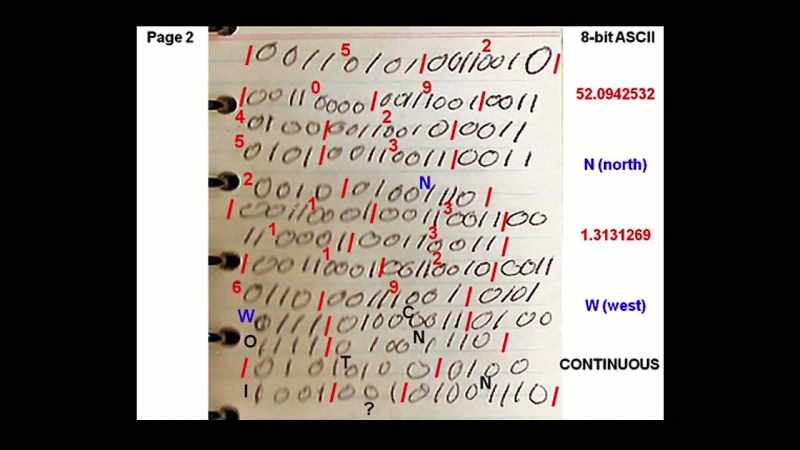 Page 2
8-bit ASCII
5 2
|00110101|00110010|
0 9
|00110000|00111001|0011
52.0942532
4 2
0100|00110010|0011
5 3
0101|00110011|0011
N (north)
2 N
0010|01001110|
1 3
|00110001|00110011|00
1 3
110001|00110011|
1.3131269
1 2
|00110001|00110010|0011
6 9
0110|00111001|0101
W (west)
W C
0111|01000011|0100
O N
1111|01001110|
T
|01010100|0100
CONTINUOUS
I N
1001|001|01001110|
?